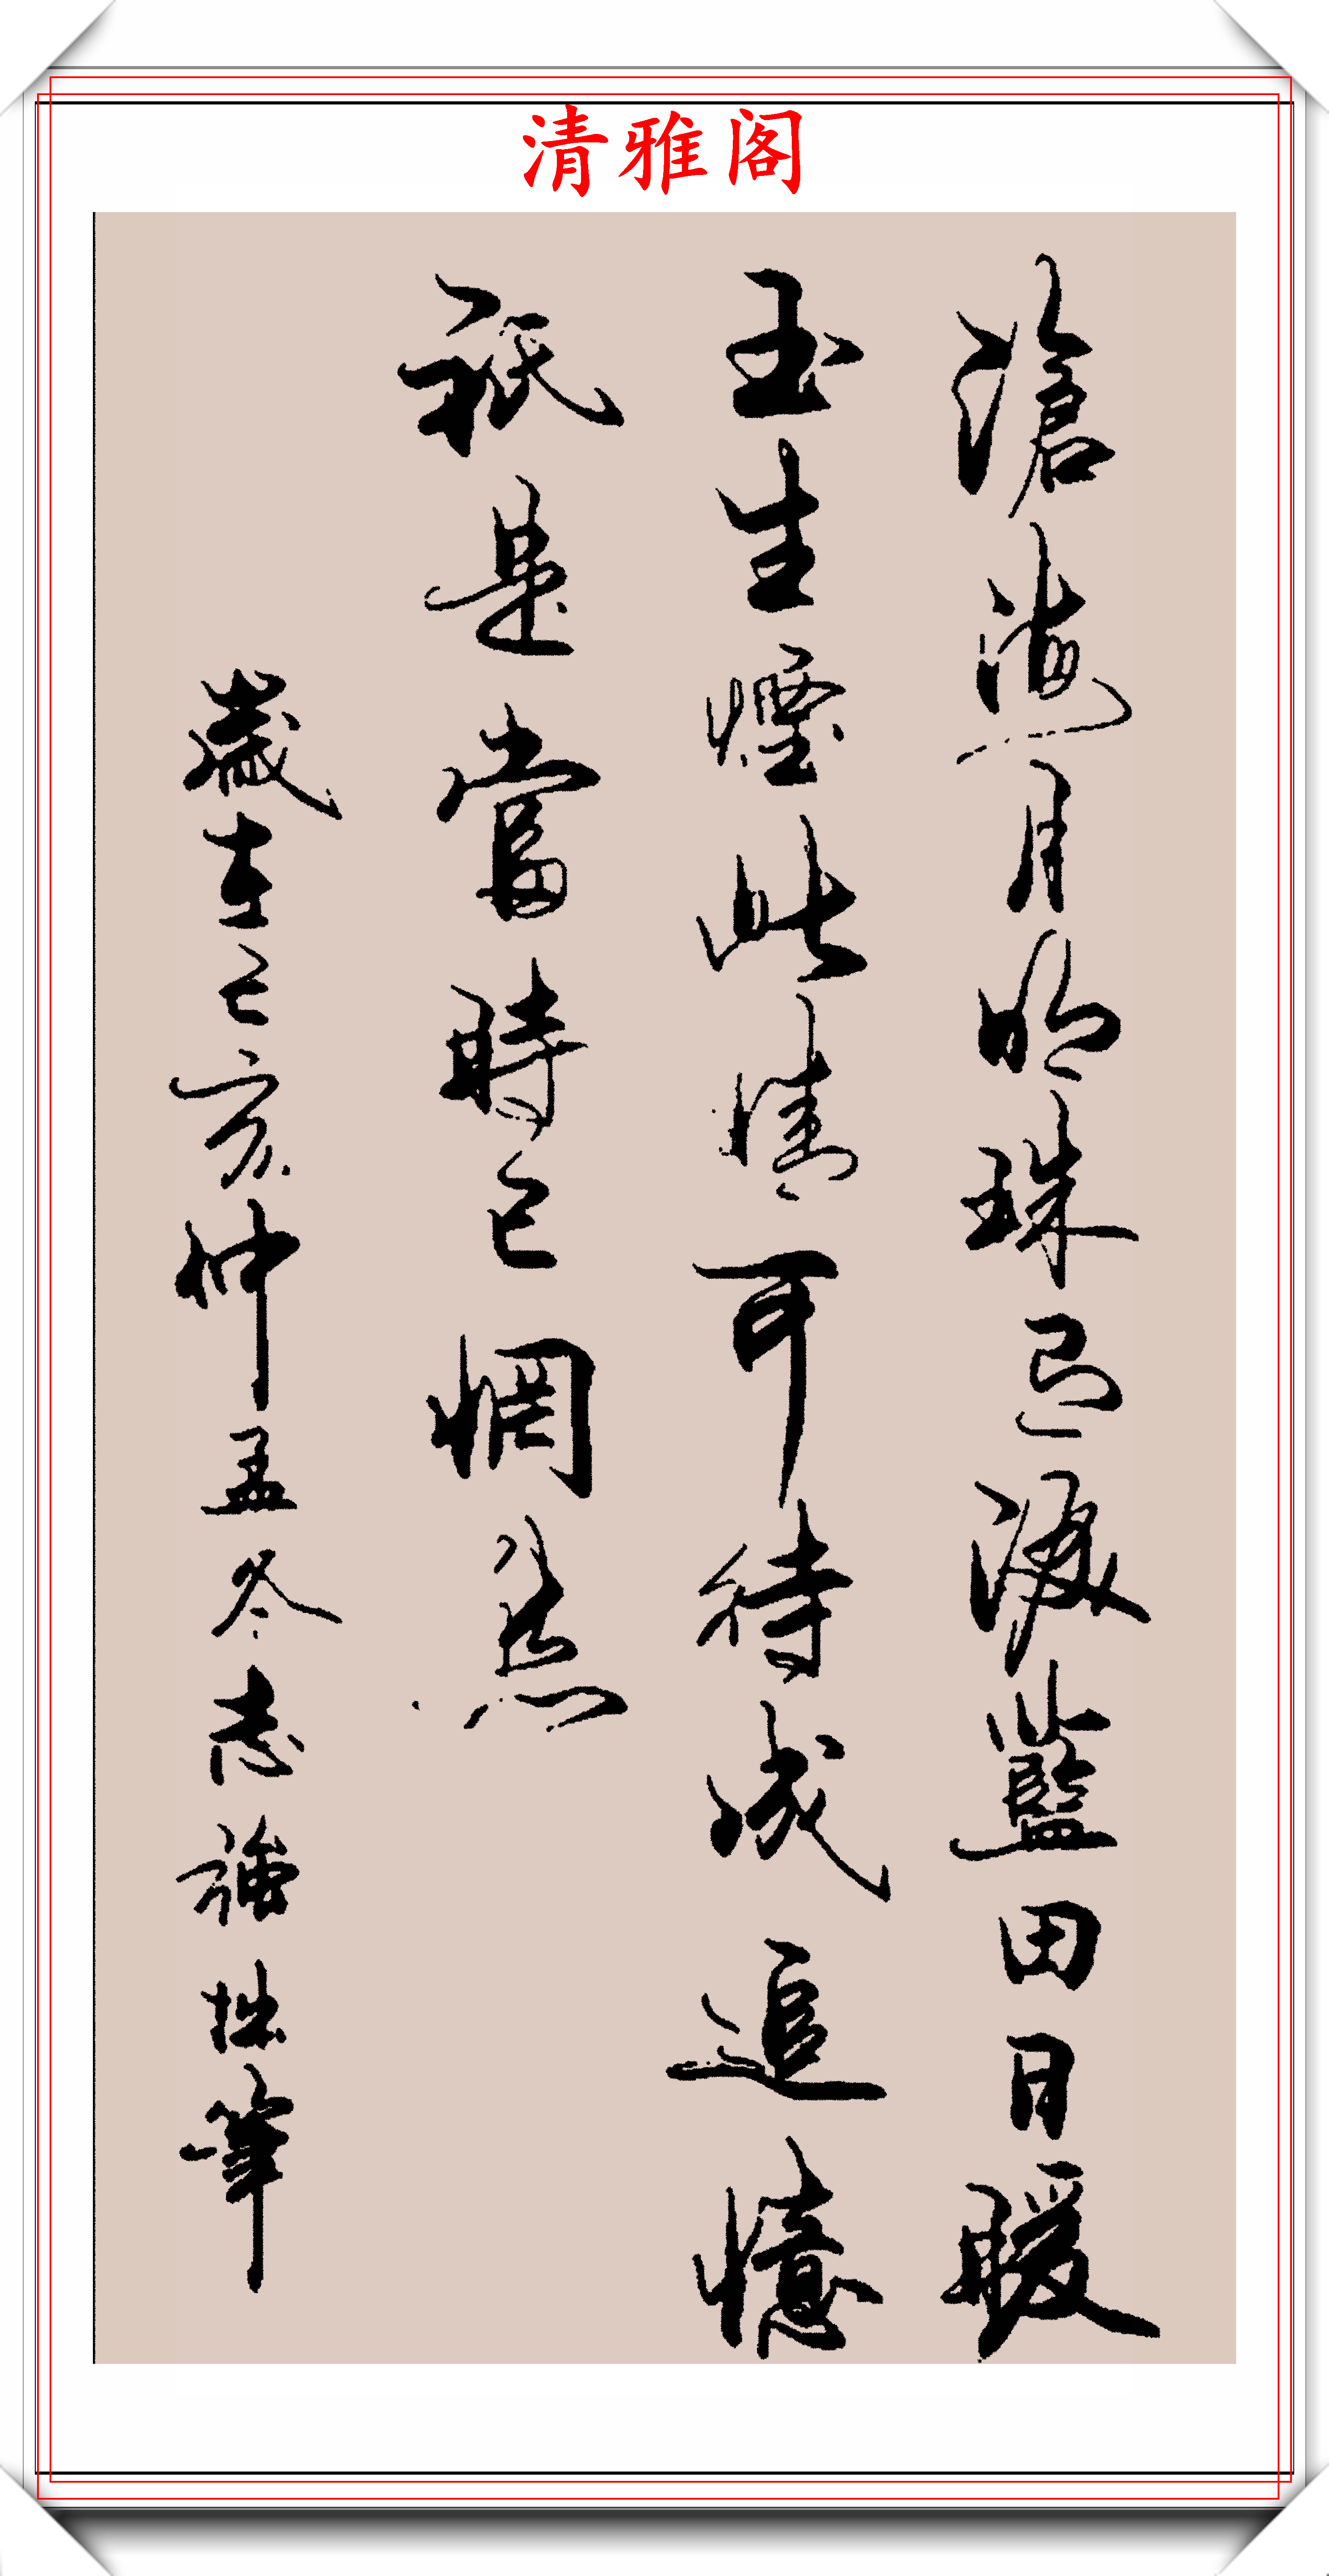 清雅阁
滄海月明珠有淚藍田日暖
玉生煙此情可待成追憶
祇是當時已惘然
歲在己亥仲孟冬志強拙筆